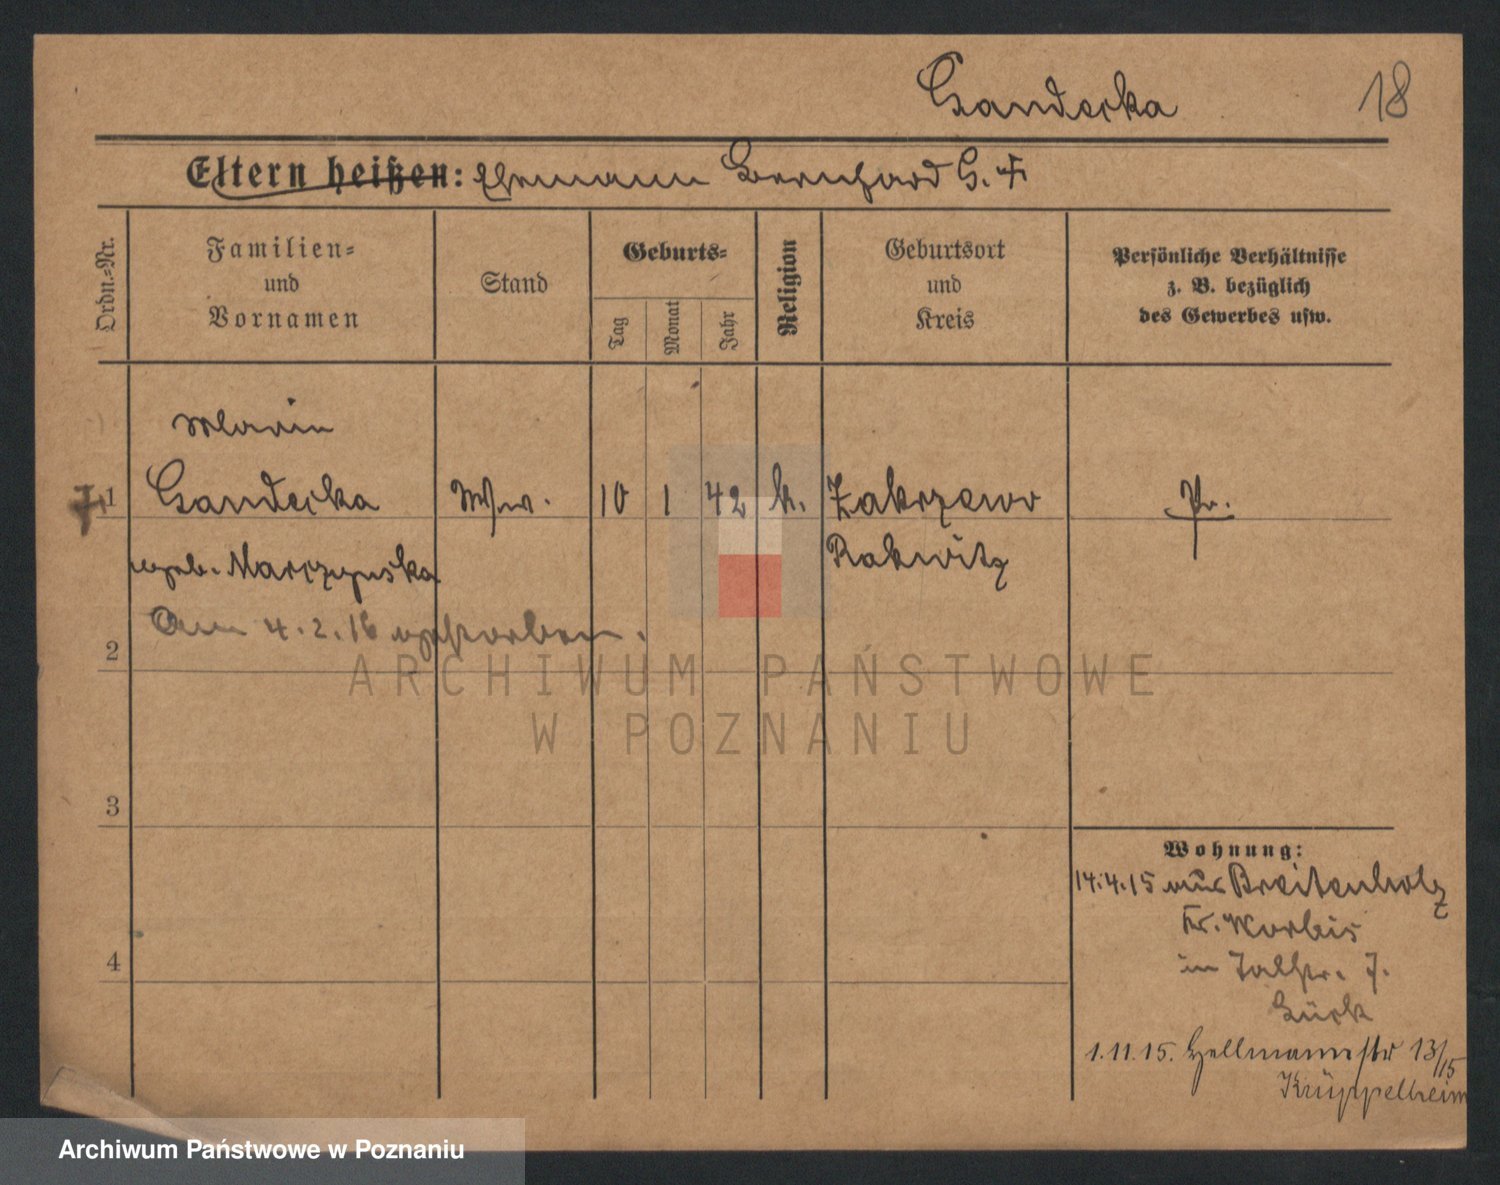 Gandecka 18
Eltern heißen: Ehemann Bernhard G. †
Ordn.-Nr.
Familien-
und
Vornamen
Stand
Geburts-
Tag
Monat
Jahr
Religion
Geburtsort
und
Kreis
Persönliche Verhältnisse
z. B. bezüglich
des Gewerbes usw.
Maria
† 1 Gandecka Ww. 10 1 42 k. Zakrzewo Pr.
geb. Marczynska Rakwitz
Am 4.2.16 gestorben.
2
3
4
ARCHIWUM PAŃSTWOWE
W POZNANIU
Wohnung:
14.4.15 aus Breitenholz
Kr. Worbis
in Talstr. 7.
1.11.15. Hellmannstr 13/15
Krüppelheim
Archiwum Państwowe w Poznaniu